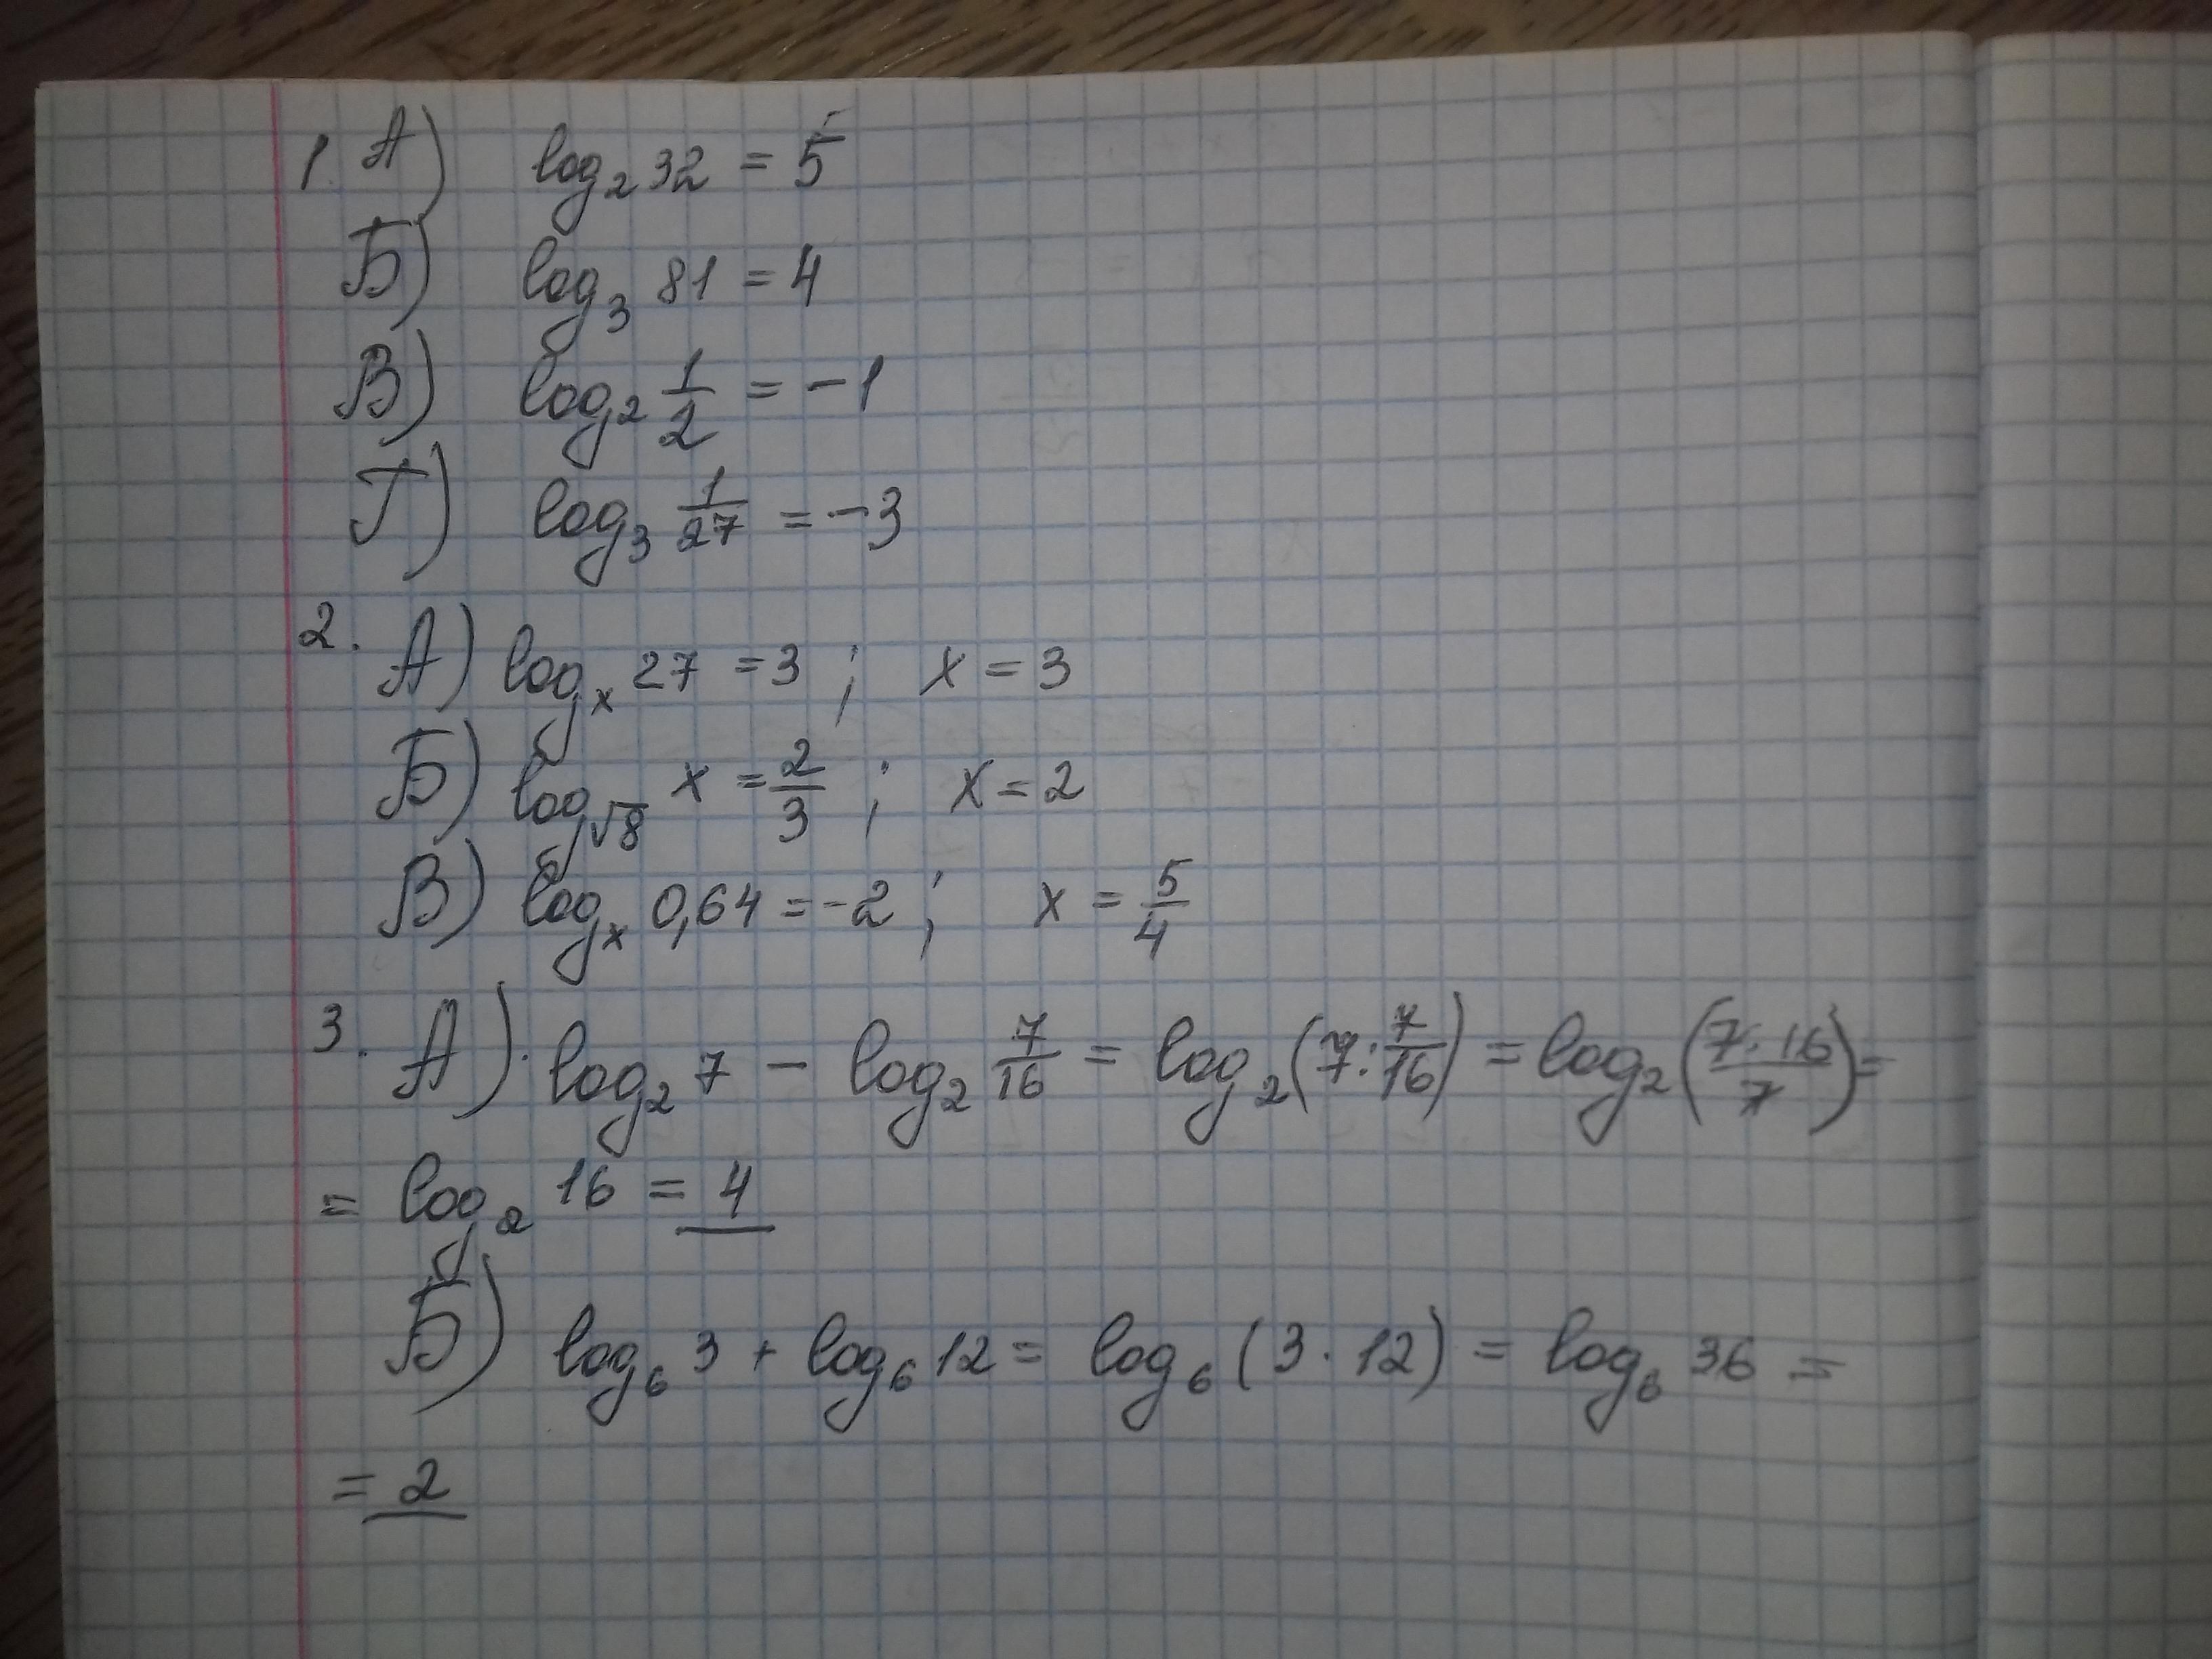 1. А) log₂ 32 = 5
Б) log₃ 81 = 4
В) log₂ 1/2 = -1
Г) log₃ 1/27 = -3
2. А) logₓ 27 = 3 ; x = 3
Б) log√8 x = 2/3 ; x = 2
В) logₓ 0,64 = -2 ; x = 5/4
3. А) log₂ 7 - log₂ 7/16 = log₂ (7 : 7/16) = log₂ (7 · 16/7) =
= log₂ 16 = 4
Б) log₆ 3 + log₆ 12 = log₆ (3 · 12) = log₆ 36 =
= 2